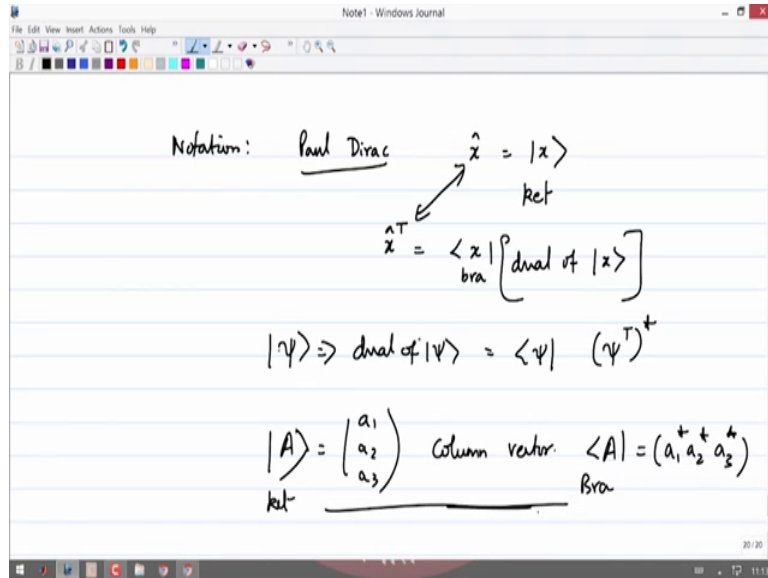 Note1 - Windows Journal
File Edit View Insert Actions Tools Help
B I
Notation: Paul Dirac x̂ = |x⟩
ket
x̂ᵀ = ⟨x| [dual of |x⟩]
bra
|ψ⟩ ⇒ dual of |ψ⟩ = ⟨ψ| (ψᵀ)*
|A⟩ = (a₁ a₂ a₃) Column vector. ⟨A| = (a₁* a₂* a₃*)
ket Bra
20/20
11:13